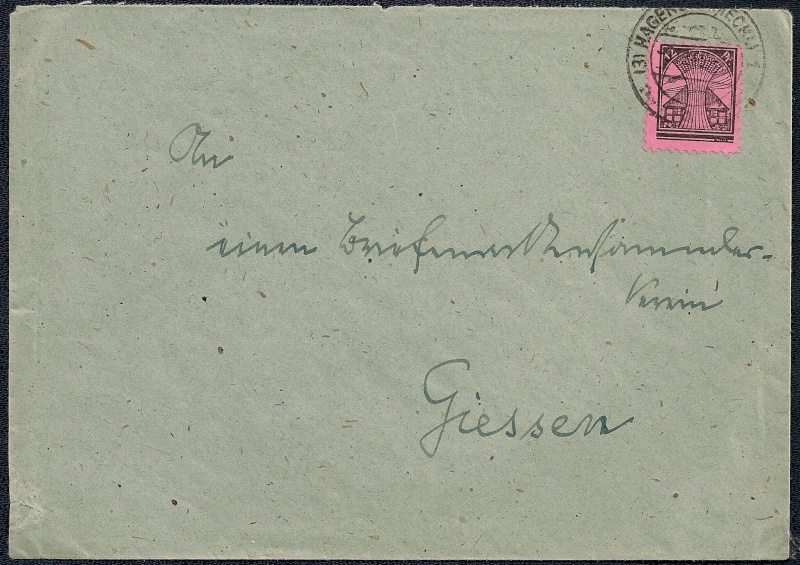 (3) HAGENOW (MECKL) 1
12 12
An
einen Briefmarkensammler-
Verein
Giessen